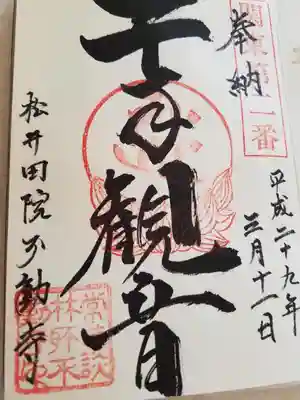 奉納
平成二十九年
三月十一日
千手観音
松井田院不動寺
常談林